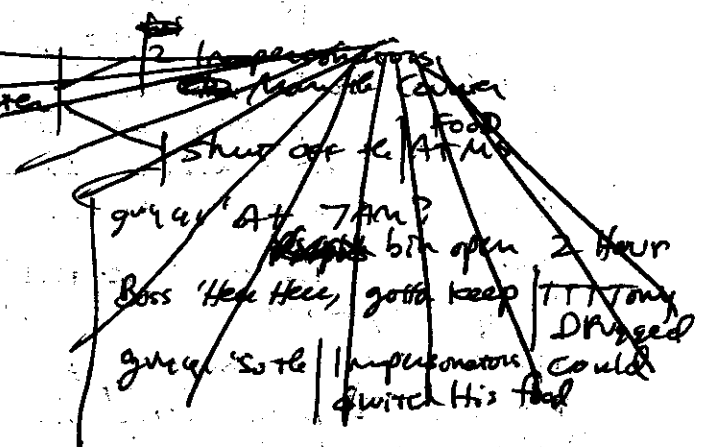 2 Impersonators
Man the Counter
Food
Shut off the ATMs
guy 'At 7AM?
bin open 2 Hour
Boss 'Here Here, gotta keep TTTTony
Drugged
guy 'So the Impersonators could
switch His food